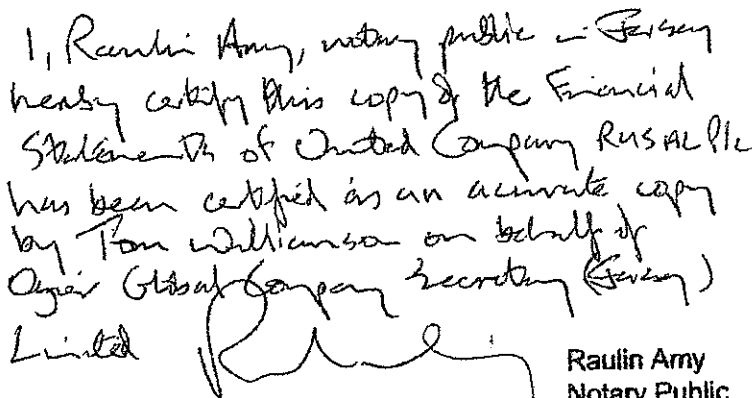 I, Raulin Amy, notary public in Jersey
hereby certify this copy of the Financial
Statements of United Company RUSAL Plc
has been certified as an accurate copy
by Tom Williamson on behalf of
Ogier Global Company Secretary (Jersey)
Limited
Raulin Amy
Notary Public